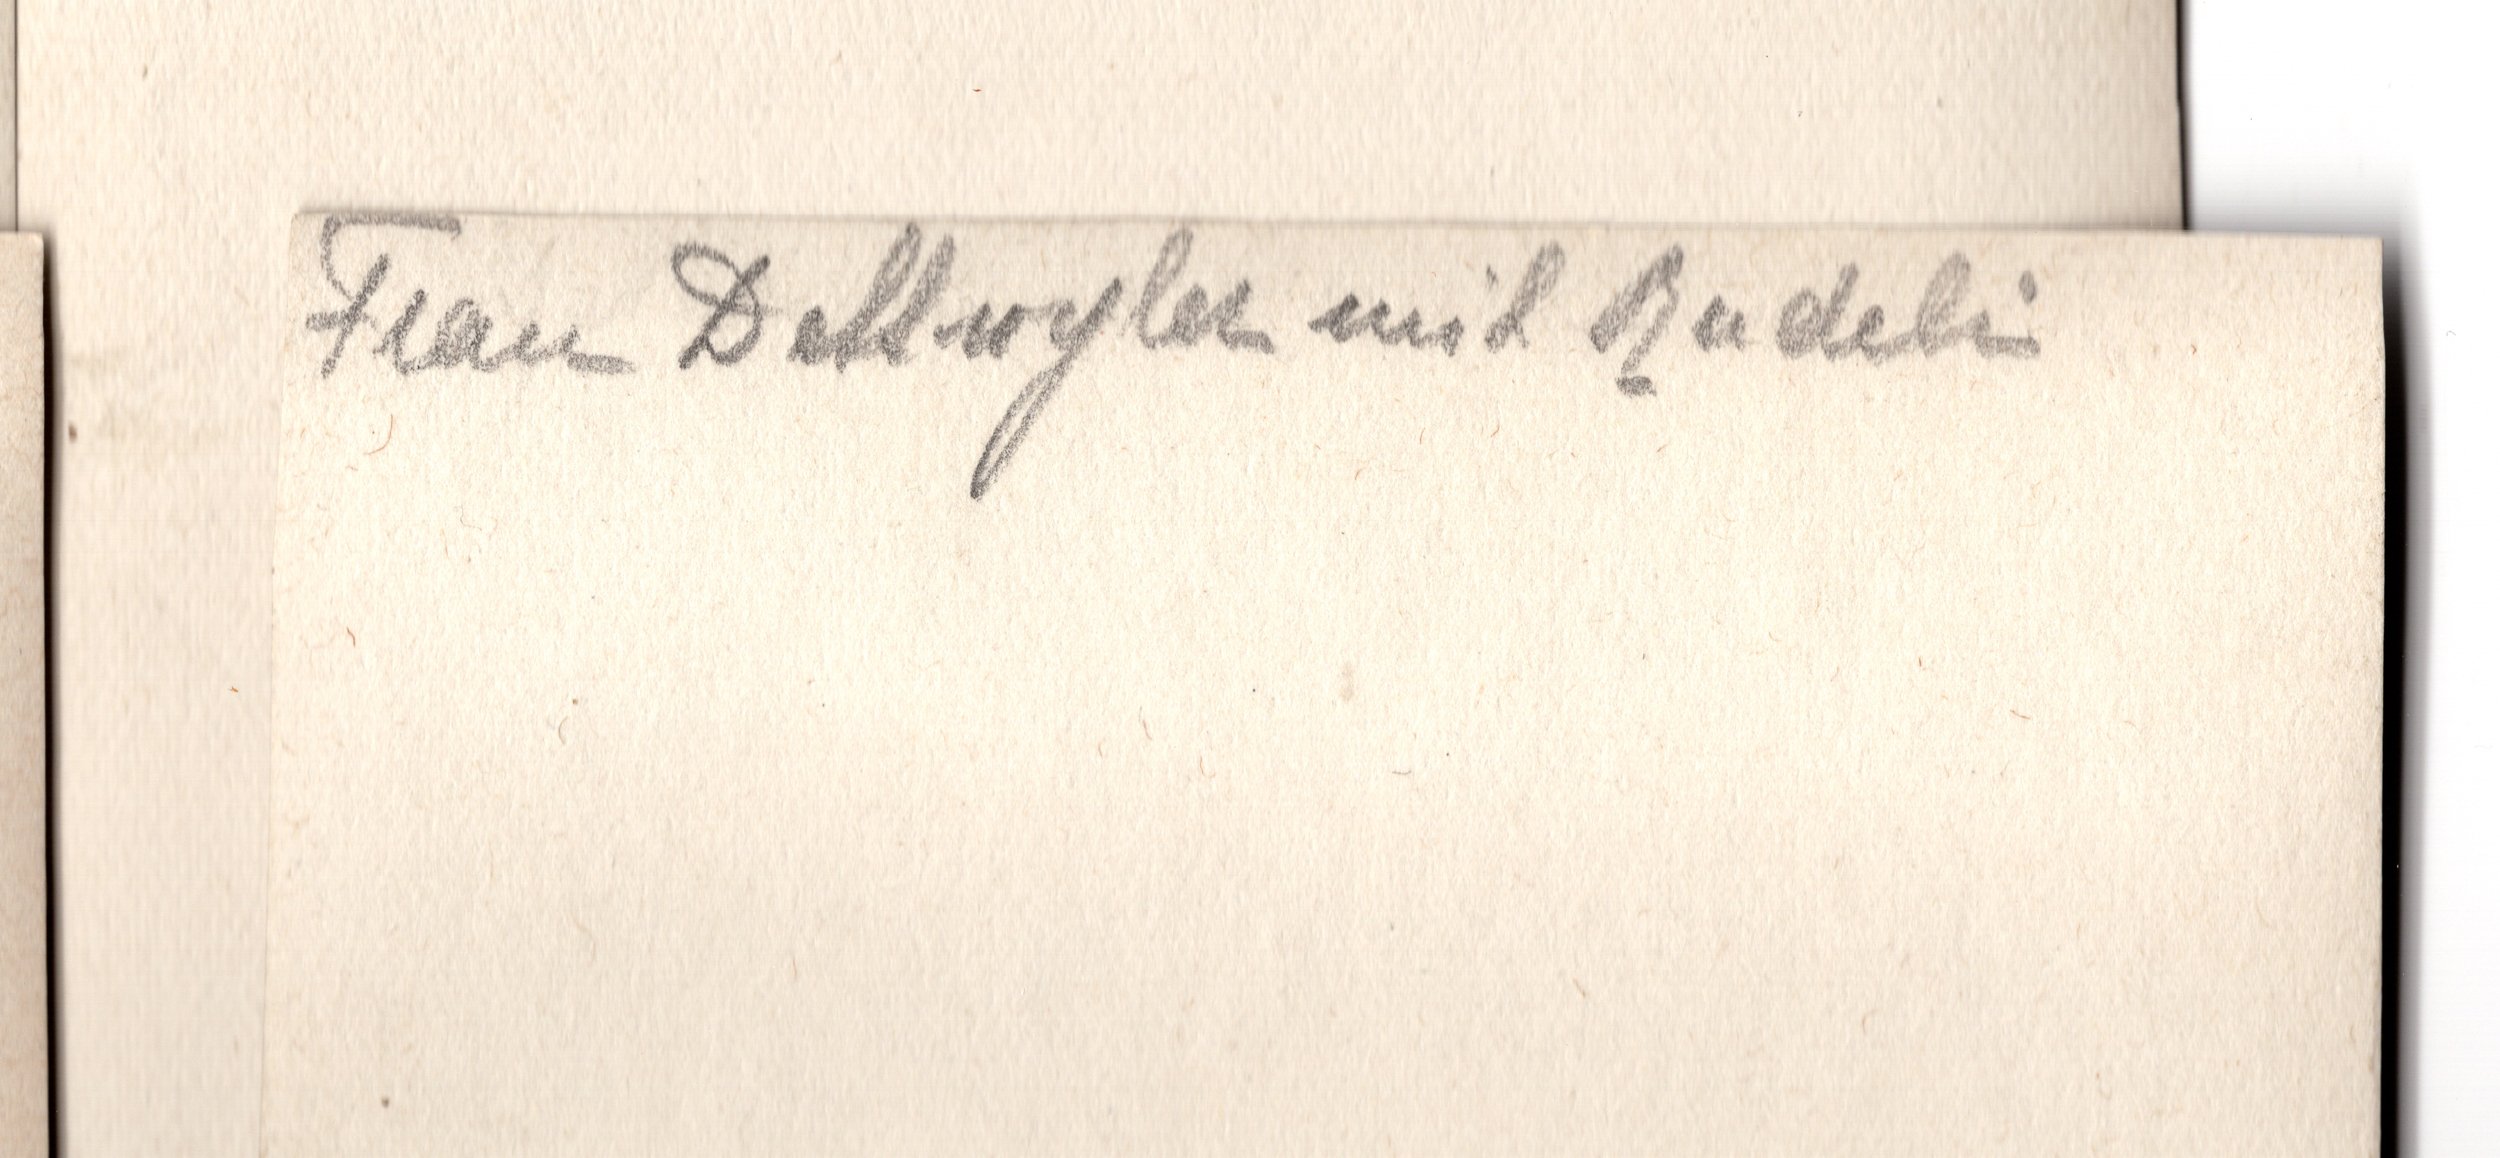 Frau Dettwyler mit Rudeli